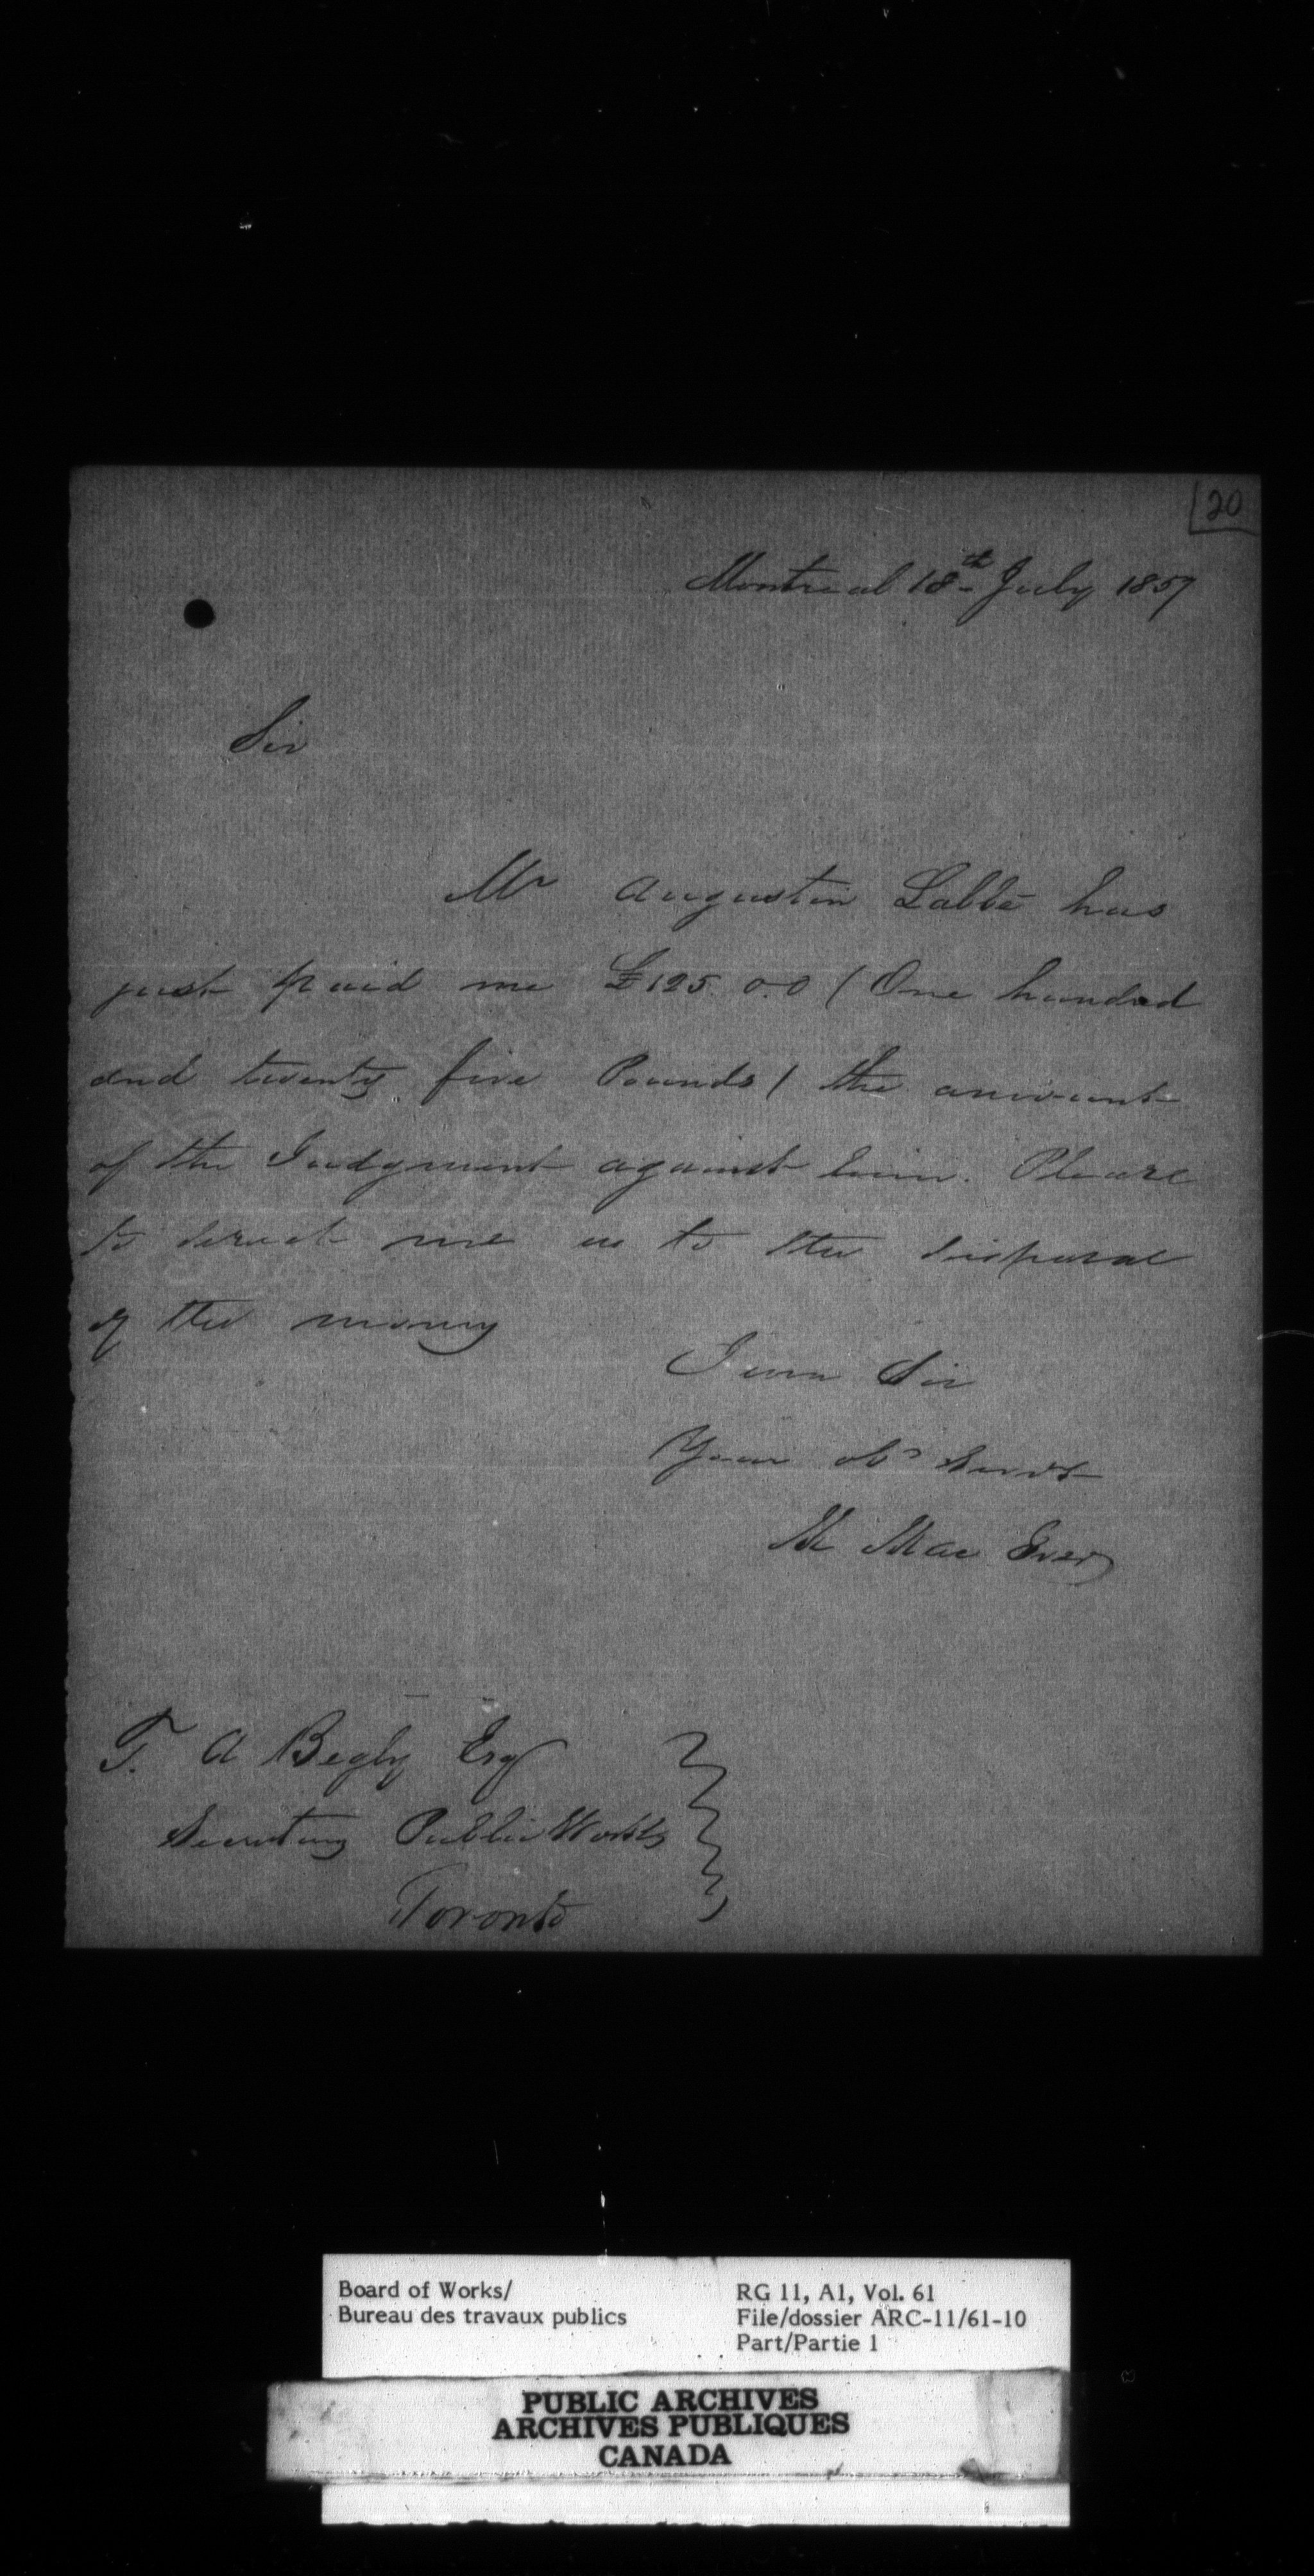 20
Montreal 18th July 1857
Sir
Mr Augustin Labbé has
just paid me £125.0.0 (One hundred
and twenty five Pounds) the amount
of the Judgment against him. Please
to direct me as to the disposal
of the money
I am Sir
Your obt Servt
M Mac Iver
T. A Begly Esq
Secretary Public Works
Toronto
Board of Works/
Bureau des travaux publics
RG 11, A1, Vol. 61
File/dossier ARC-11/61-10
Part/Partie 1
PUBLIC ARCHIVES
ARCHIVES PUBLIQUES
CANADA